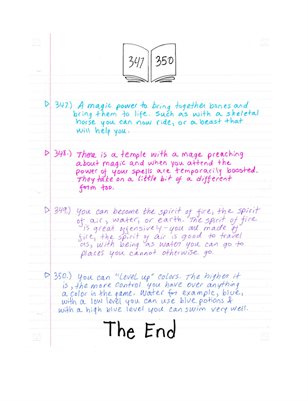 347 350
347.) A magic power to bring together bones and
bring them to life. Such as with a skeletal
horse you can now ride, or a beast that
will help you.
348.) There is a temple with a mage preaching
about magic and when you attend the
power of your spells are temporarily boosted.
They take on a little bit of a different
form too.
349.) You can become the spirit of fire, the spirit
of air, water, or earth. The spirit of fire
is great offensively - you are made of
fire, the spirit of air is good to travel
as, with being as water you can go to
places you cannot otherwise go.
350.) You can "level up" colors. The higher it
is, the more control you have over anything
a color in the game. Water for example, blue,
with a low level you can use blue potions &
with a high blue level you can swim very well.
The End